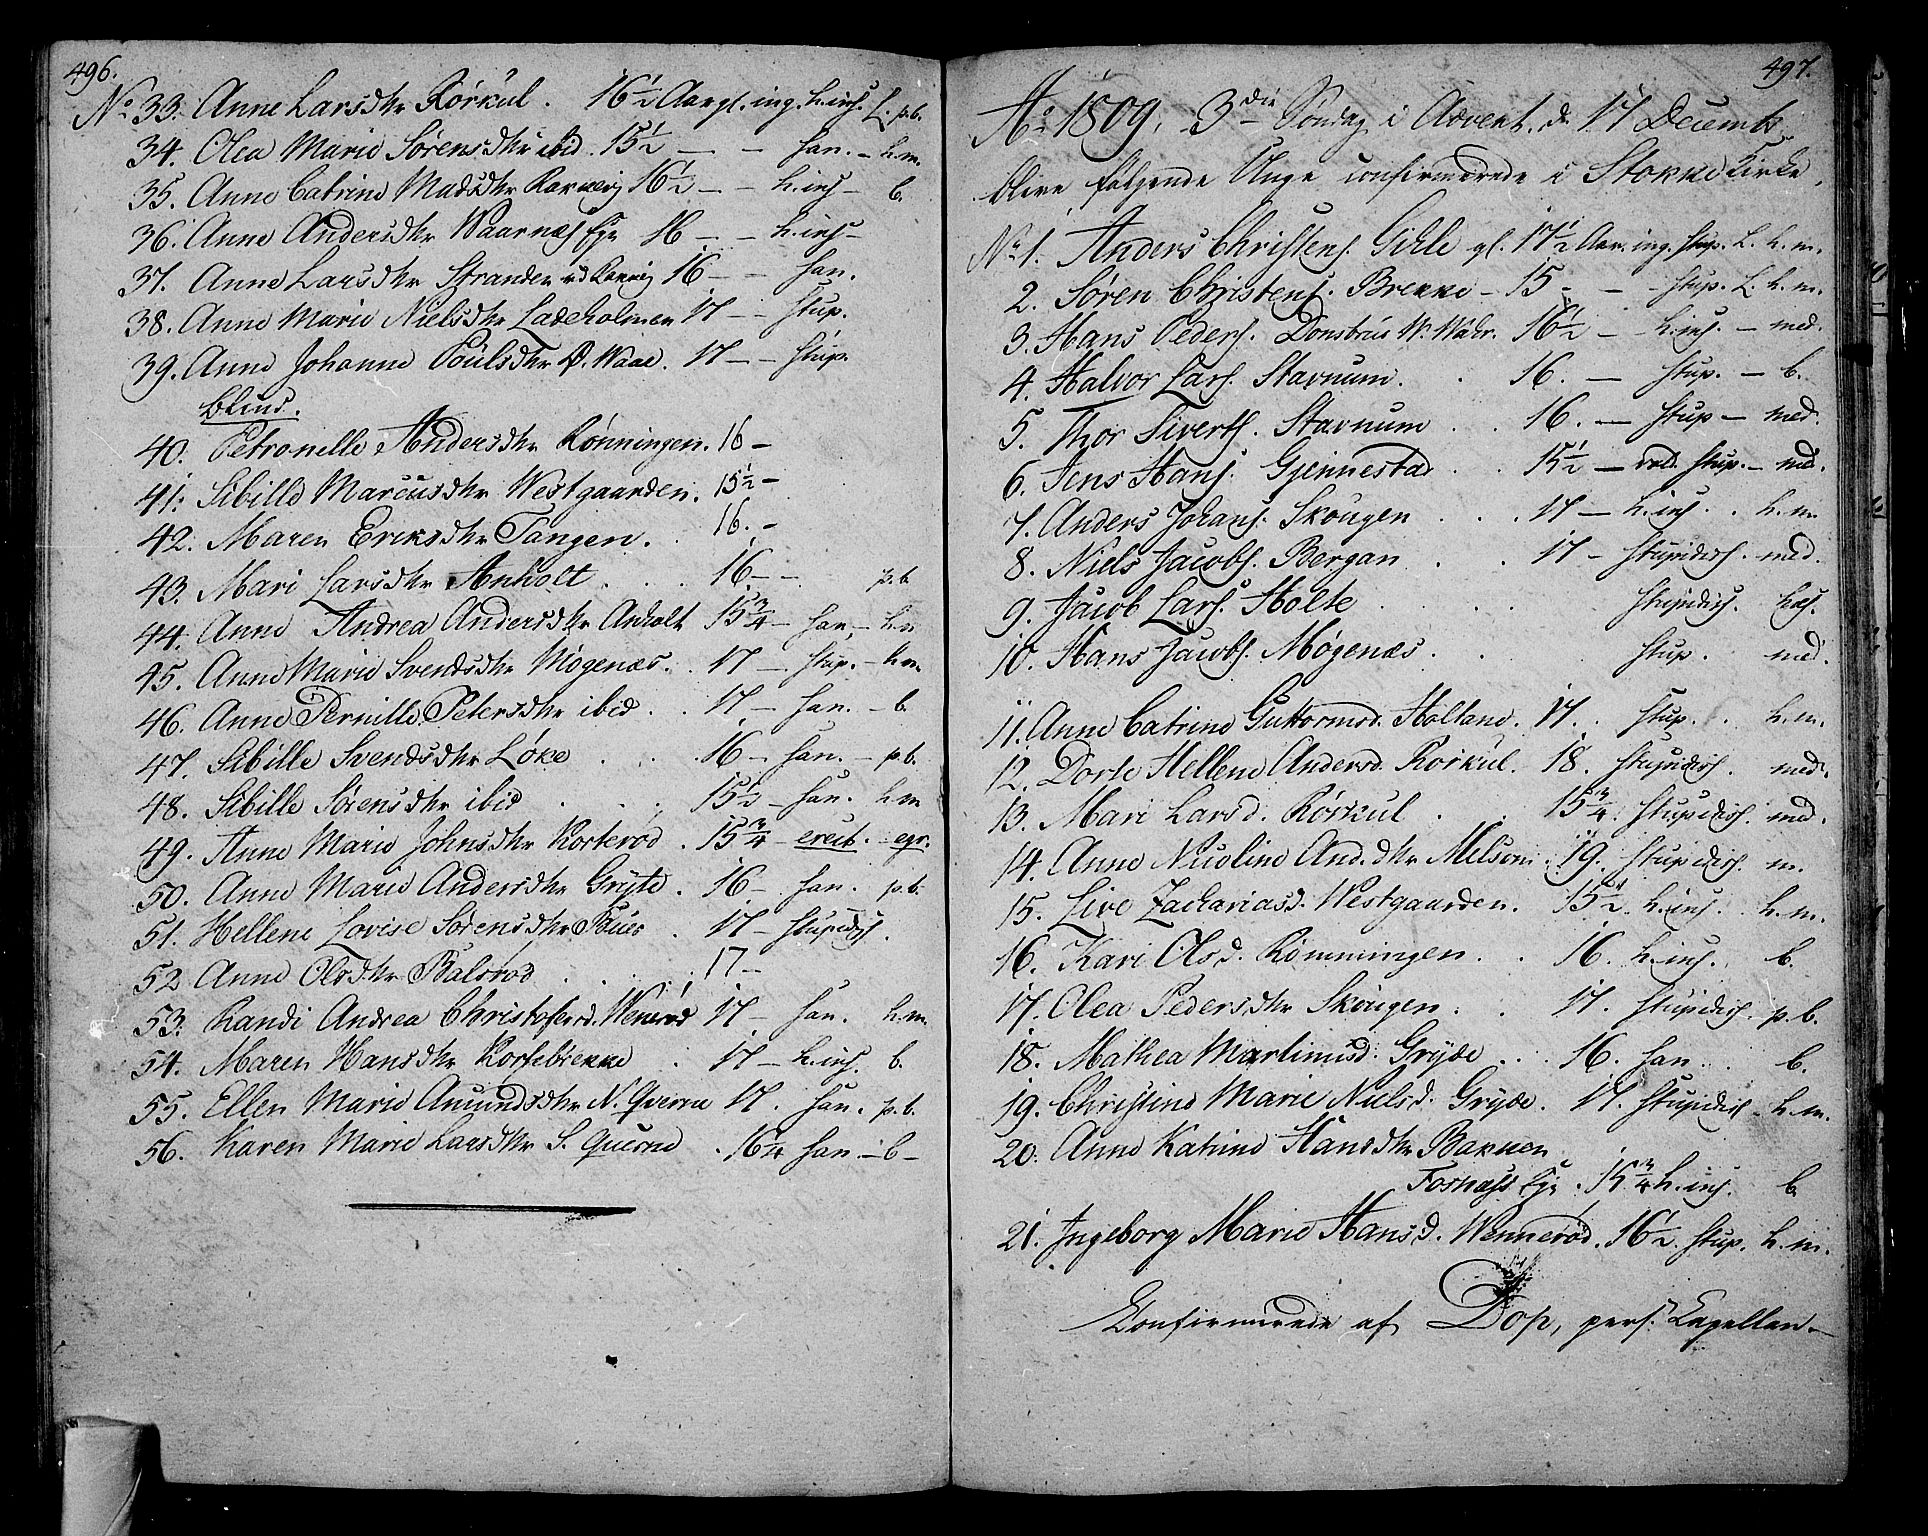 496.
No 33. Anne Larsdtr Rörkul. 16½ Aar gl. ing. h. ins. L. p.b.
34. Olea Marie Sørensdtr ibid. 15½ — — san. — h.m.
35. Anne Catrine Madsdtr 16½ — — h. ins — b.
36. Anne Andersdtr Waarnæs Eje 16 — — h. ins —
37. Anne Larsdtr Stranden 16 — — san.
38. Anne Marie Nielsdtr Ladeholmen 17 — — stup.
39. Anne Johanne Poulsdtr 17 — — stup.
40. Petronelle Andersdtr Rønningen. 16 —
41. Sibille Marcusdtr Westgaarden. 15½ —
42. Maren Eriksdtr Tangen. 16. —
43. Mari Larsdtr Anholt . . . 16. — — p.b
44. Anne Andrea Andersdtr Anholt 15¾ — san. — h.m
45. Anne Marie Svendsdtr Mögenæs. . 17 — stup. — h.m.
46. Anne Pernille Petersdtr ibid . . 17 — san. — b.
47. Sibille Svendsdtr Løke . . . 16 — san. — p.b.
48. Sibille Sørensdtr ibid . . . 15½ — san. h.m
49. Anne Marie Johnsdtr Korterød . 15¾ — erect. — egr.
50. Anne Marie Andersdtr Gryte . 16 — san. p.b.
51. Hellene Lovise Sørensdtr . 17 — stupidis.
52 Anne Olsdtr Balsrod . . . 17 —
53. Randi Andrea Christofersd. Wennerød 17 — san. h.m.
54. Maren Hansdtr Kortebrekke . 17 — h. ins. b.
55. Ellen Marie Amundsdtr N. Qverne 17. san. p.b.
56. Karen Marie Larsdtr S. Querne . 16¼ san — b —
497.
Ao 1809, 3die Søndag i Advent, d. 17 Decemb.
blive følgende Unge confirmerede i Stokke Kirke,
No 1. Anders Christens. Gihle gl. 17½ Aar. ing. stup. L. h.m.
2. Søren Christens. Brekke — 15 — — stup. L. h.m.
3. Hans Peders. 16½ — h. ins. — med.
4. Halvor Lars. Stavnum. . 16. — stup. — b.
5. Thor Siverts. Stavnum . . 16. — stup — med.
6. Jens Hans. Gjennestad . . 15½ — stup. — med.
7. Anders Johans. Skougen . . . 17 — h. ins. . h.m.
8. Niels Jacobs. Bergan . . 17 — stupidis. med.
9. Jacob Lars. Holte . . . stupidis.
10. Hans Jacobs. Møgenæs . . stup. med.
11. Anne Catrine Guttormsd. Holtane. 17. . stup. . h.m.
12. Dorte Hellene Andersd. Rorkul. 18. stupidis. med.
13. Mari Larsd. Rörkul . . 15¾. stupidis. med.
14. Anne Nicoline And.dtr Melsom . 19. stupidis. m.
15. Live Zachariasd. Westgaarden. 15½. h. ins. . h.m.
16. Kari Olsd. Rømmingen. . . 16. h. ins. . b.
17. Olea Pedersdtr Skougen. . . 17. stupidis. p.b.
18. Mathea Martinusd. Gryde . . . 16. san . . b.
19. Christine Marie Nielsd. Gryde. 17. stupidis. h.m.
20. Anne Katrine Hansdtr Bakken
Fosnæss Eje . 15¾ h. ins. b
21. Ingeborg Marie Hansd. Wennerød. 16½. stup. h.m.
Confirmerede af Dop, pers. Capellan —